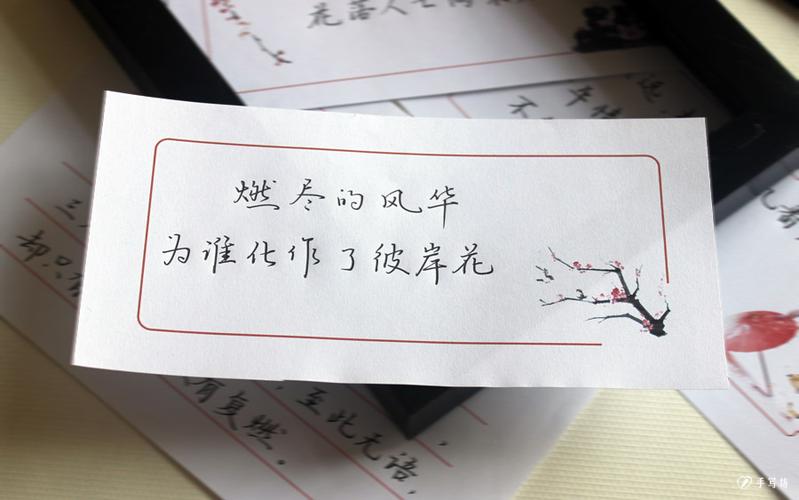 花落人亡两
不
年
三
却只有
燃尽的风华
为谁化作了彼岸花
至此无语，
有复燃。
手写坊